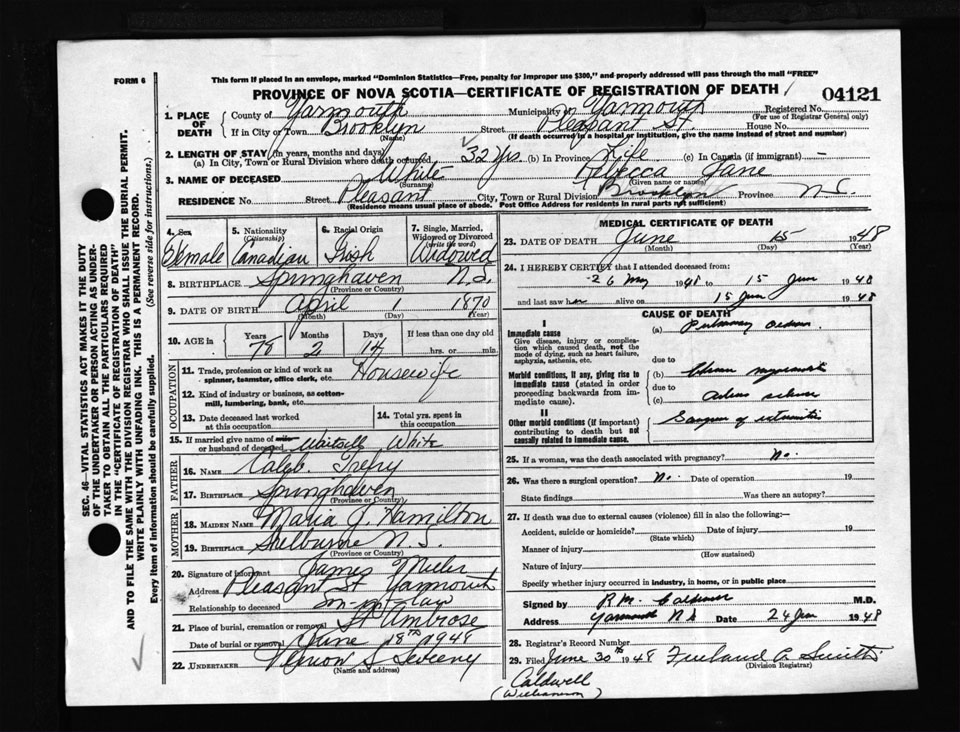 FORM 6
This form if placed in an envelope, marked "Dominion Statistics—Free, penalty for improper use $300," and properly addressed will pass through the mail "FREE"
PROVINCE OF NOVA SCOTIA—CERTIFICATE OF REGISTRATION OF DEATH
04121
1. PLACE OF DEATH
County of Yarmouth Municipality of Yarmouth Registered No.
(For use of Registrar General only)
If in City or Town Brooklyn Street Pleasant St. House No.
(Name) (If death occurred in a hospital or institution, give the name instead of street and number)
2. LENGTH OF STAY (in years, months and days)
(a) In City, Town or Rural Division where death occurred 32 yrs. (b) In Province Life (c) In Canada (if immigrant) -
3. NAME OF DECEASED White Rebecca Jane
(Surname) (Given name or names)
RESIDENCE No. Street Pleasant City, Town or Rural Division Brooklyn Province N.S.
(Residence means usual place of abode. Post Office Address for residents in rural parts not sufficient)
4. Sex Female
5. Nationality (Citizenship) Canadian
6. Racial Origin Irish
7. Single, Married, Widowed or Divorced (write the word) Widowed
8. BIRTHPLACE Springhaven N.S.
(Province or Country)
9. DATE OF BIRTH April 1 1870
(Month) (Day) (Year)
10. AGE in Years 78 Months 2 Days 14 If less than one day old hrs. or min.
OCCUPATION
11. Trade, profession or kind of work as spinner, teamster, office clerk, etc. Housewife
12. Kind of industry or business, as cotton-mill, lumbering, bank, etc.
13. Date deceased last worked at this occupation
14. Total yrs. spent in this occupation
15. If married give name of wife or husband of deceased White
FATHER
16. NAME Caleb Trefry
17. BIRTHPLACE Springhaven
(Province or Country)
MOTHER
18. MAIDEN NAME Maria J. Hamilton
19. BIRTHPLACE Shelburne N.S.
(Province or Country)
20. Signature of informant James Miller
Address Pleasant St Yarmouth
Relationship to deceased
21. Place of burial, cremation or removal St Ambrose
Date of burial or removal June 18th 1948
22. UNDERTAKER Vernon S Sweeny
(Name and address)
MEDICAL CERTIFICATE OF DEATH
23. DATE OF DEATH June 15 1948
(Month) (Day) (Year)
24. I HEREBY CERTIFY that I attended deceased from:
26 May 1948 to 15 Jun 1948
and last saw her alive on 15 Jun 1948
CAUSE OF DEATH
I
Immediate cause
Give disease, injury or complication which caused death, not the mode of dying, such as heart failure, asphyxia, asthenia, etc.
(a) Pulmonary oedema
due to
Morbid conditions, if any, giving rise to immediate cause (stated in order proceeding backwards from immediate cause).
(b)
due to
(c)
II
Other morbid conditions (if important) contributing to death but not causally related to immediate cause.
25. If a woman, was the death associated with pregnancy? No.
26. Was there a surgical operation? No. Date of operation 19
State findings Was there an autopsy?
27. If death was due to external causes (violence) fill in also the following:—
Accident, suicide or homicide? Date of injury 19
(State which)
Manner of injury
(How sustained)
Nature of injury
Specify whether injury occurred in industry, in home, or in public place
Signed by R.M. Caldwell M.D.
Address Yarmouth N S Date 24 Jun 1948
28. Registrar's Record Number
29. Filed June 30th 1948 Smith
(Division Registrar)
Caldwell
(Williamson)
SEC. 46—VITAL STATISTICS ACT MAKES IT THE DUTY OF THE UNDERTAKER OR PERSON ACTING AS UNDERTAKER TO OBTAIN ALL THE PARTICULARS REQUIRED IN THE "CERTIFICATE OF REGISTRATION OF DEATH" AND TO FILE THE SAME WITH THE DIVISION REGISTRAR WHO SHALL ISSUE THE BURIAL PERMIT.
WRITE PLAINLY WITH UNFADING INK. THIS IS A PERMANENT RECORD.
Every item of information should be carefully supplied. (See reverse side for instructions.)